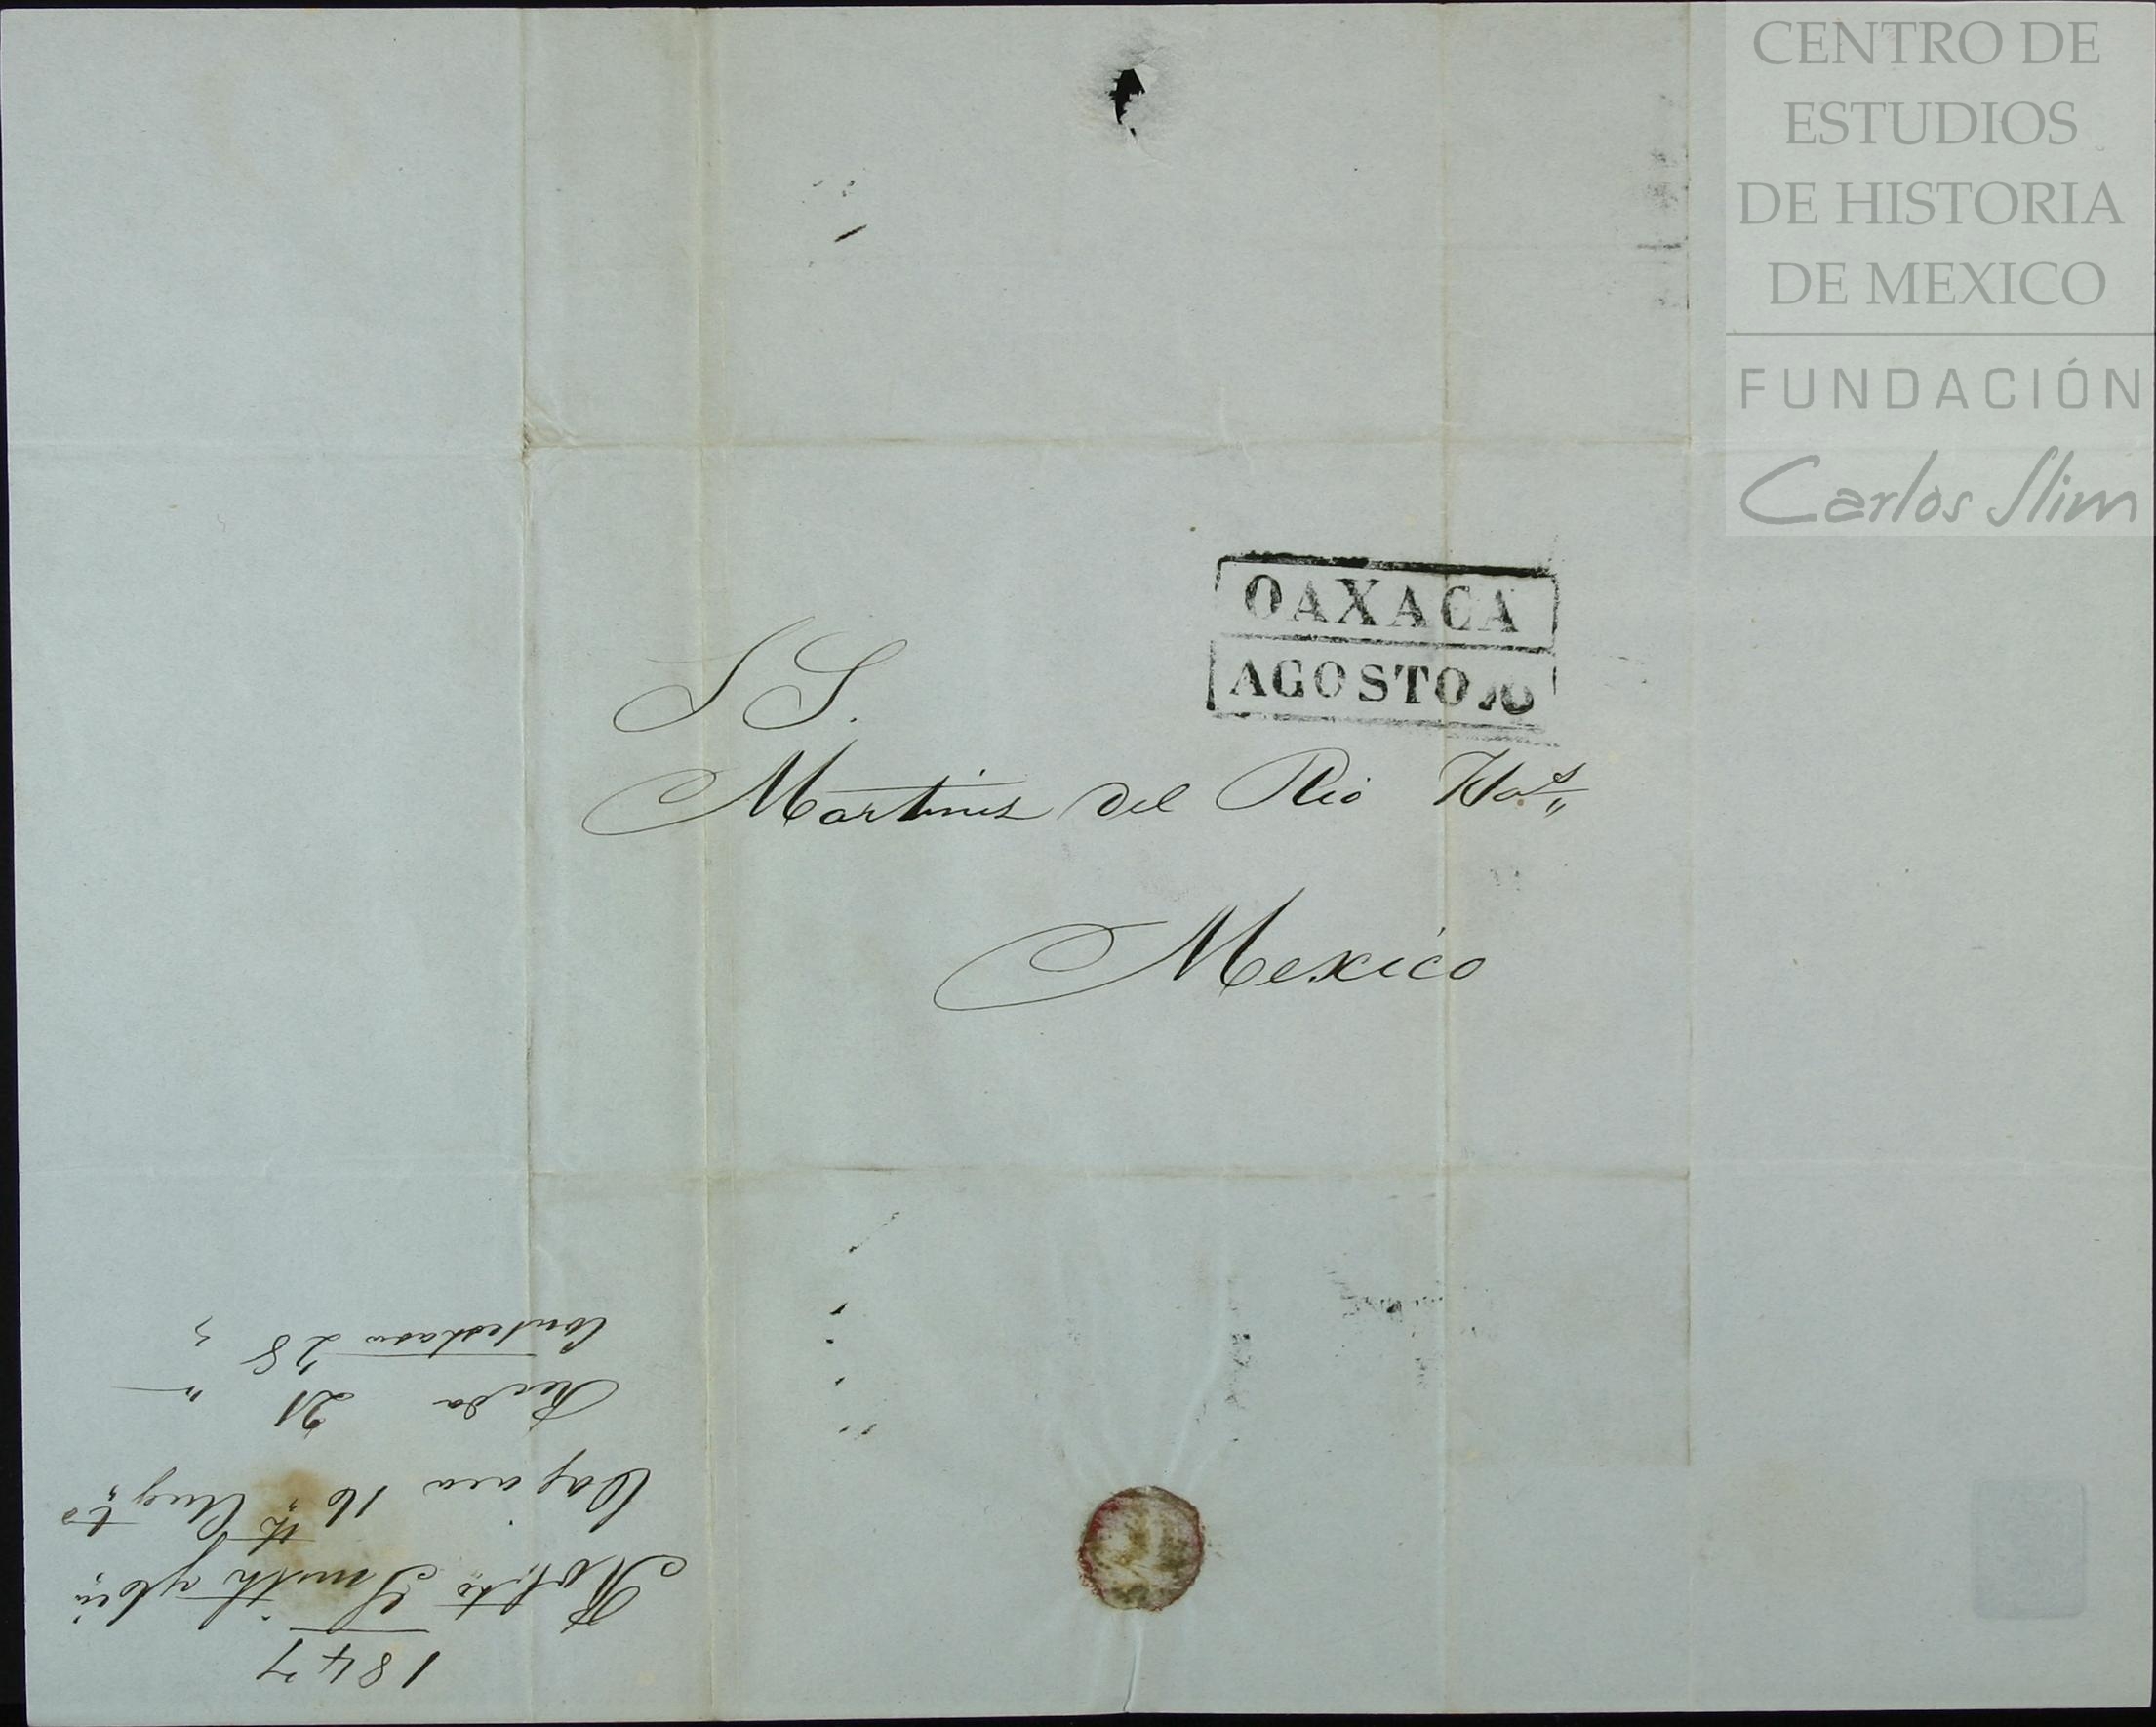 CENTRO DE
ESTUDIOS
DE HISTORIA
DE MEXICO
FUNDACIÓN
Carlos Slim
OAXACA
AGOSTO
S S.
Martinez del Rio Hos
Mexico
1847
Smith
16 Augto
21 "
Contestada 28